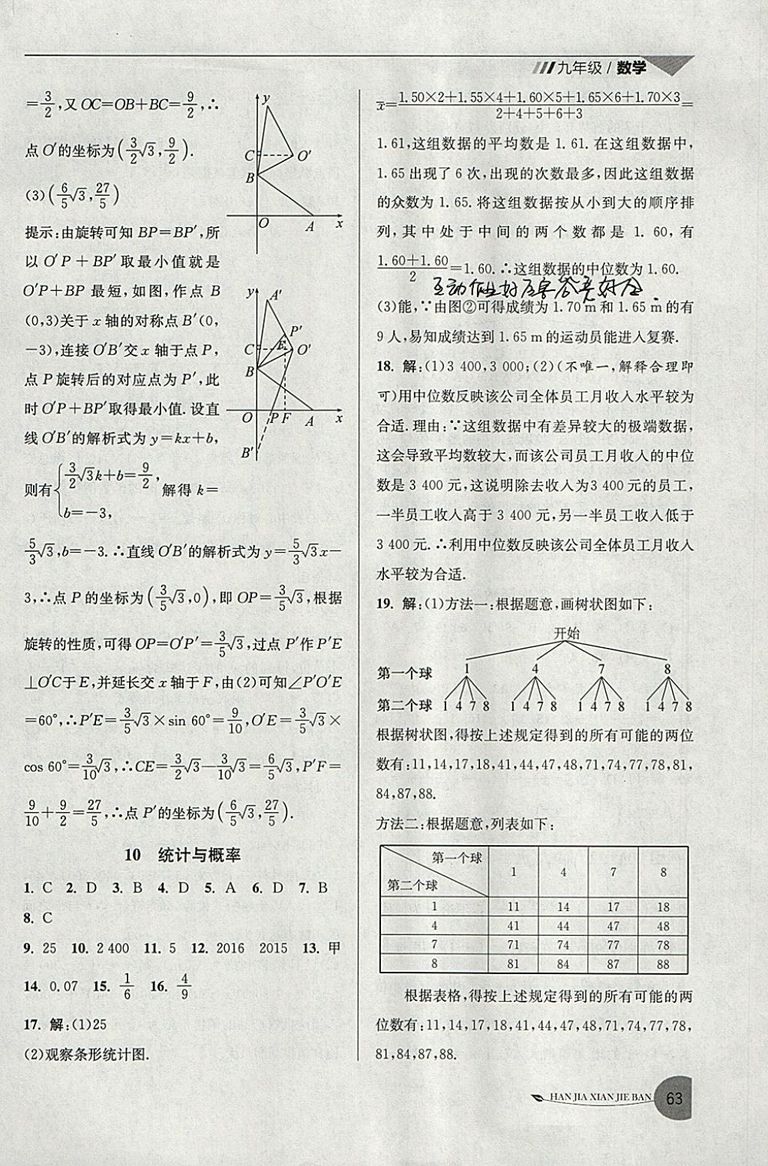 九年级/数学
=3/2,又OC=OB+BC=9/2,∴
点O′的坐标为(3/2√3,9/2).
(3)(6/5√3,27/5)
提示:由旋转可知BP=BP′,所
以O′P+BP′取最小值就是
O′P+BP最短,如图,作点B
(0,3)关于x轴的对称点B′(0,
-3),连接O′B′交x轴于点P,
点P旋转后的对应点为P′,此
时O′P+BP′取得最小值.设直
线O′B′的解析式为y=kx+b,
则有{3/2√3k+b=9/2, b=-3, 解得k=
5/3√3,b=-3.∴直线O′B′的解析式为y=5/3√3x-
3,∴点P的坐标为(3/5√3,0),即OP=3/5√3,根据
旋转的性质,可得OP=O′P′=3/5√3,过点P′作P′E
⊥O′C于E,并延长交x轴于F,由(2)可知∠P′O′E
=60°,∴P′E=3/5√3×sin 60°=9/10,O′E=3/5√3×
cos 60°=3/10√3,∴CE=3/2√3-3/10√3=6/5√3,P′F=
9/10+9/2=27/5,∴点P′的坐标为(6/5√3,27/5).
y
C
O′
B
O
A
x
y
A′
P′
C
E
O′
B
O
P
F
A
x
B′
10 统计与概率
1. C 2. D 3. B 4. D 5. A 6. D 7. B
8. C
9. 25 10. 2 400 11. 5 12. 2016 2015 13. 甲
14. 0.07 15. 1/6 16. 4/9
17. 解:(1)25
(2)观察条形统计图.
x̄=(1.50×2+1.55×4+1.60×5+1.65×6+1.70×3)/(2+4+5+6+3)=
1.61,这组数据的平均数是1.61.在这组数据中,
1.65出现了6次,出现的次数最多,因此这组数据
的众数为1.65.将这组数据按从小到大的顺序排
列,其中处于中间的两个数都是1.60,有
(1.60+1.60)/2=1.60.∴这组数据的中位数为1.60.
(3)能,∵由图②可得成绩为1.70 m和1.65 m的有
9人,易知成绩达到1.65 m的运动员能进入复赛.
18. 解:(1)3 400,3 000;(2)(不唯一,解释合理即
可)用中位数反映该公司全体员工月收入水平较为
合适.理由:∵这组数据中有差异较大的极端数据,
这会导致平均数较大,而该公司员工月收入的中位
数是3 400元,这说明除去收入为3 400元的员工,
一半员工收入高于3 400元,另一半员工收入低于
3 400元.∴利用中位数反映该公司全体员工月收入
水平较为合适.
19. 解:(1)方法一:根据题意,画树状图如下:
开始
第一个球 1 4 7 8
第二个球 1 4 7 8 1 4 7 8 1 4 7 8 1 4 7 8
根据树状图,得按上述规定得到的所有可能的两位
数有:11,14,17,18,41,44,47,48,71,74,77,78,81,
84,87,88.
方法二:根据题意,列表如下:
第一个球 1 4 7 8
第二个球
1 11 14 17 18
4 41 44 47 48
7 71 74 77 78
8 81 84 87 88
根据表格,得按上述规定得到的所有可能的两
位数有:11,14,17,18,41,44,47,48,71,74,77,78,
81,84,87,88.
HAN JIA XIAN JIE BAN 63